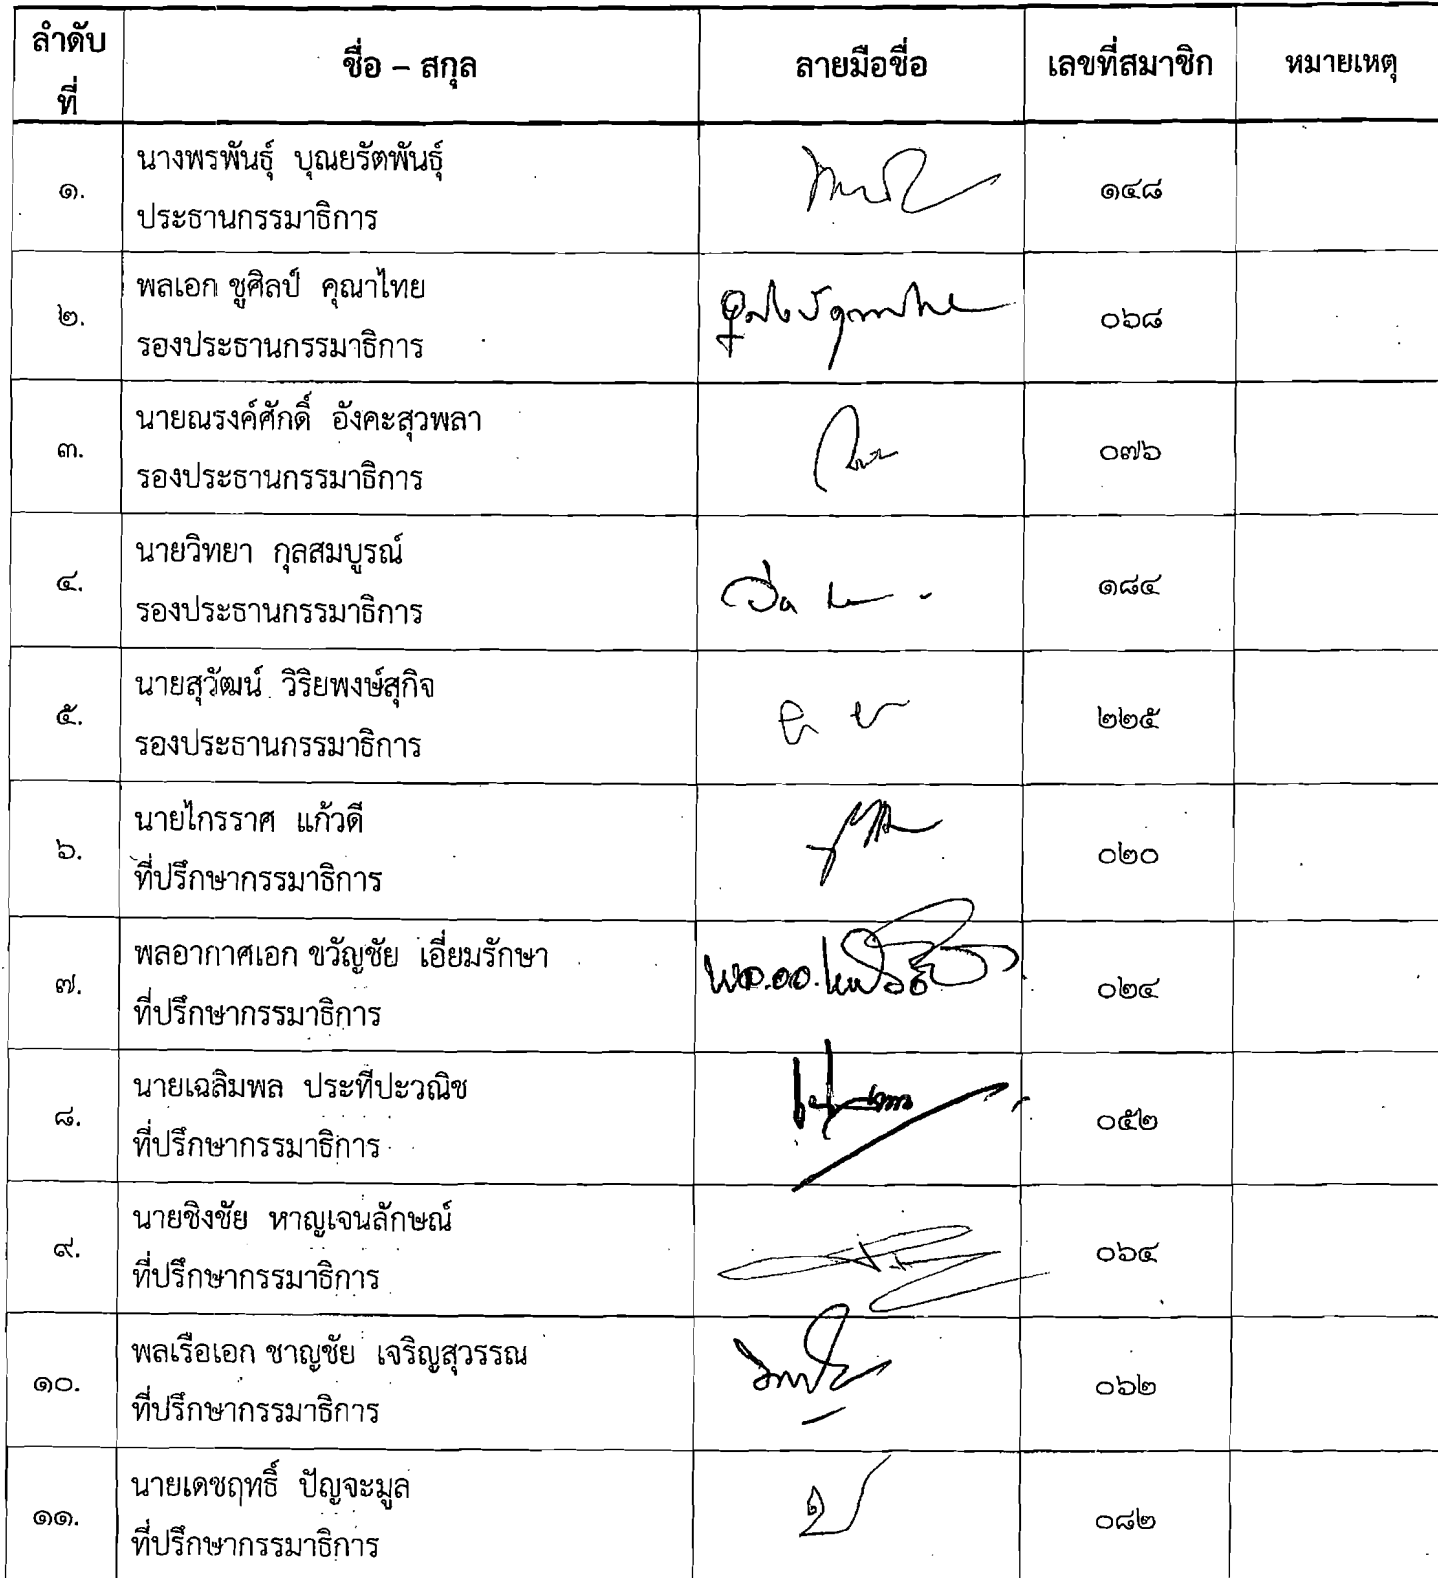 ลำดับ
ที่
ชื่อ – สกุล
ลายมือชื่อ
เลขที่สมาชิก
หมายเหตุ
๑.
นางพรพันธุ์ บุณยรัตพันธุ์
ประธานกรรมาธิการ
๑๔๘
๒.
พลเอก ชูศิลป์ คุณาไทย
รองประธานกรรมาธิการ
๐๖๘
๓.
นายณรงค์ศักดิ์ อังคะสุวพลา
รองประธานกรรมาธิการ
๐๗๖
๔.
นายวิทยา กุลสมบูรณ์
รองประธานกรรมาธิการ
๑๘๔
๕.
นายสุวัฒน์ วิริยพงษ์สุกิจ
รองประธานกรรมาธิการ
๒๒๕
๖.
นายไกรราศ แก้วดี
ที่ปรึกษากรรมาธิการ
๐๒๐
๗.
พลอากาศเอก ขวัญชัย เอี่ยมรักษา
ที่ปรึกษากรรมาธิการ
พล.อ.อ.
๐๒๔
๘.
นายเฉลิมพล ประทีปะวณิช
ที่ปรึกษากรรมาธิการ
๐๕๒
๙.
นายชิงชัย หาญเจนลักษณ์
ที่ปรึกษากรรมาธิการ
๐๖๔
๑๐.
พลเรือเอก ชาญชัย เจริญสุวรรณ
ที่ปรึกษากรรมาธิการ
๐๖๒
๑๑.
นายเดชฤทธิ์ ปัญจะมูล
ที่ปรึกษากรรมาธิการ
๐๘๒